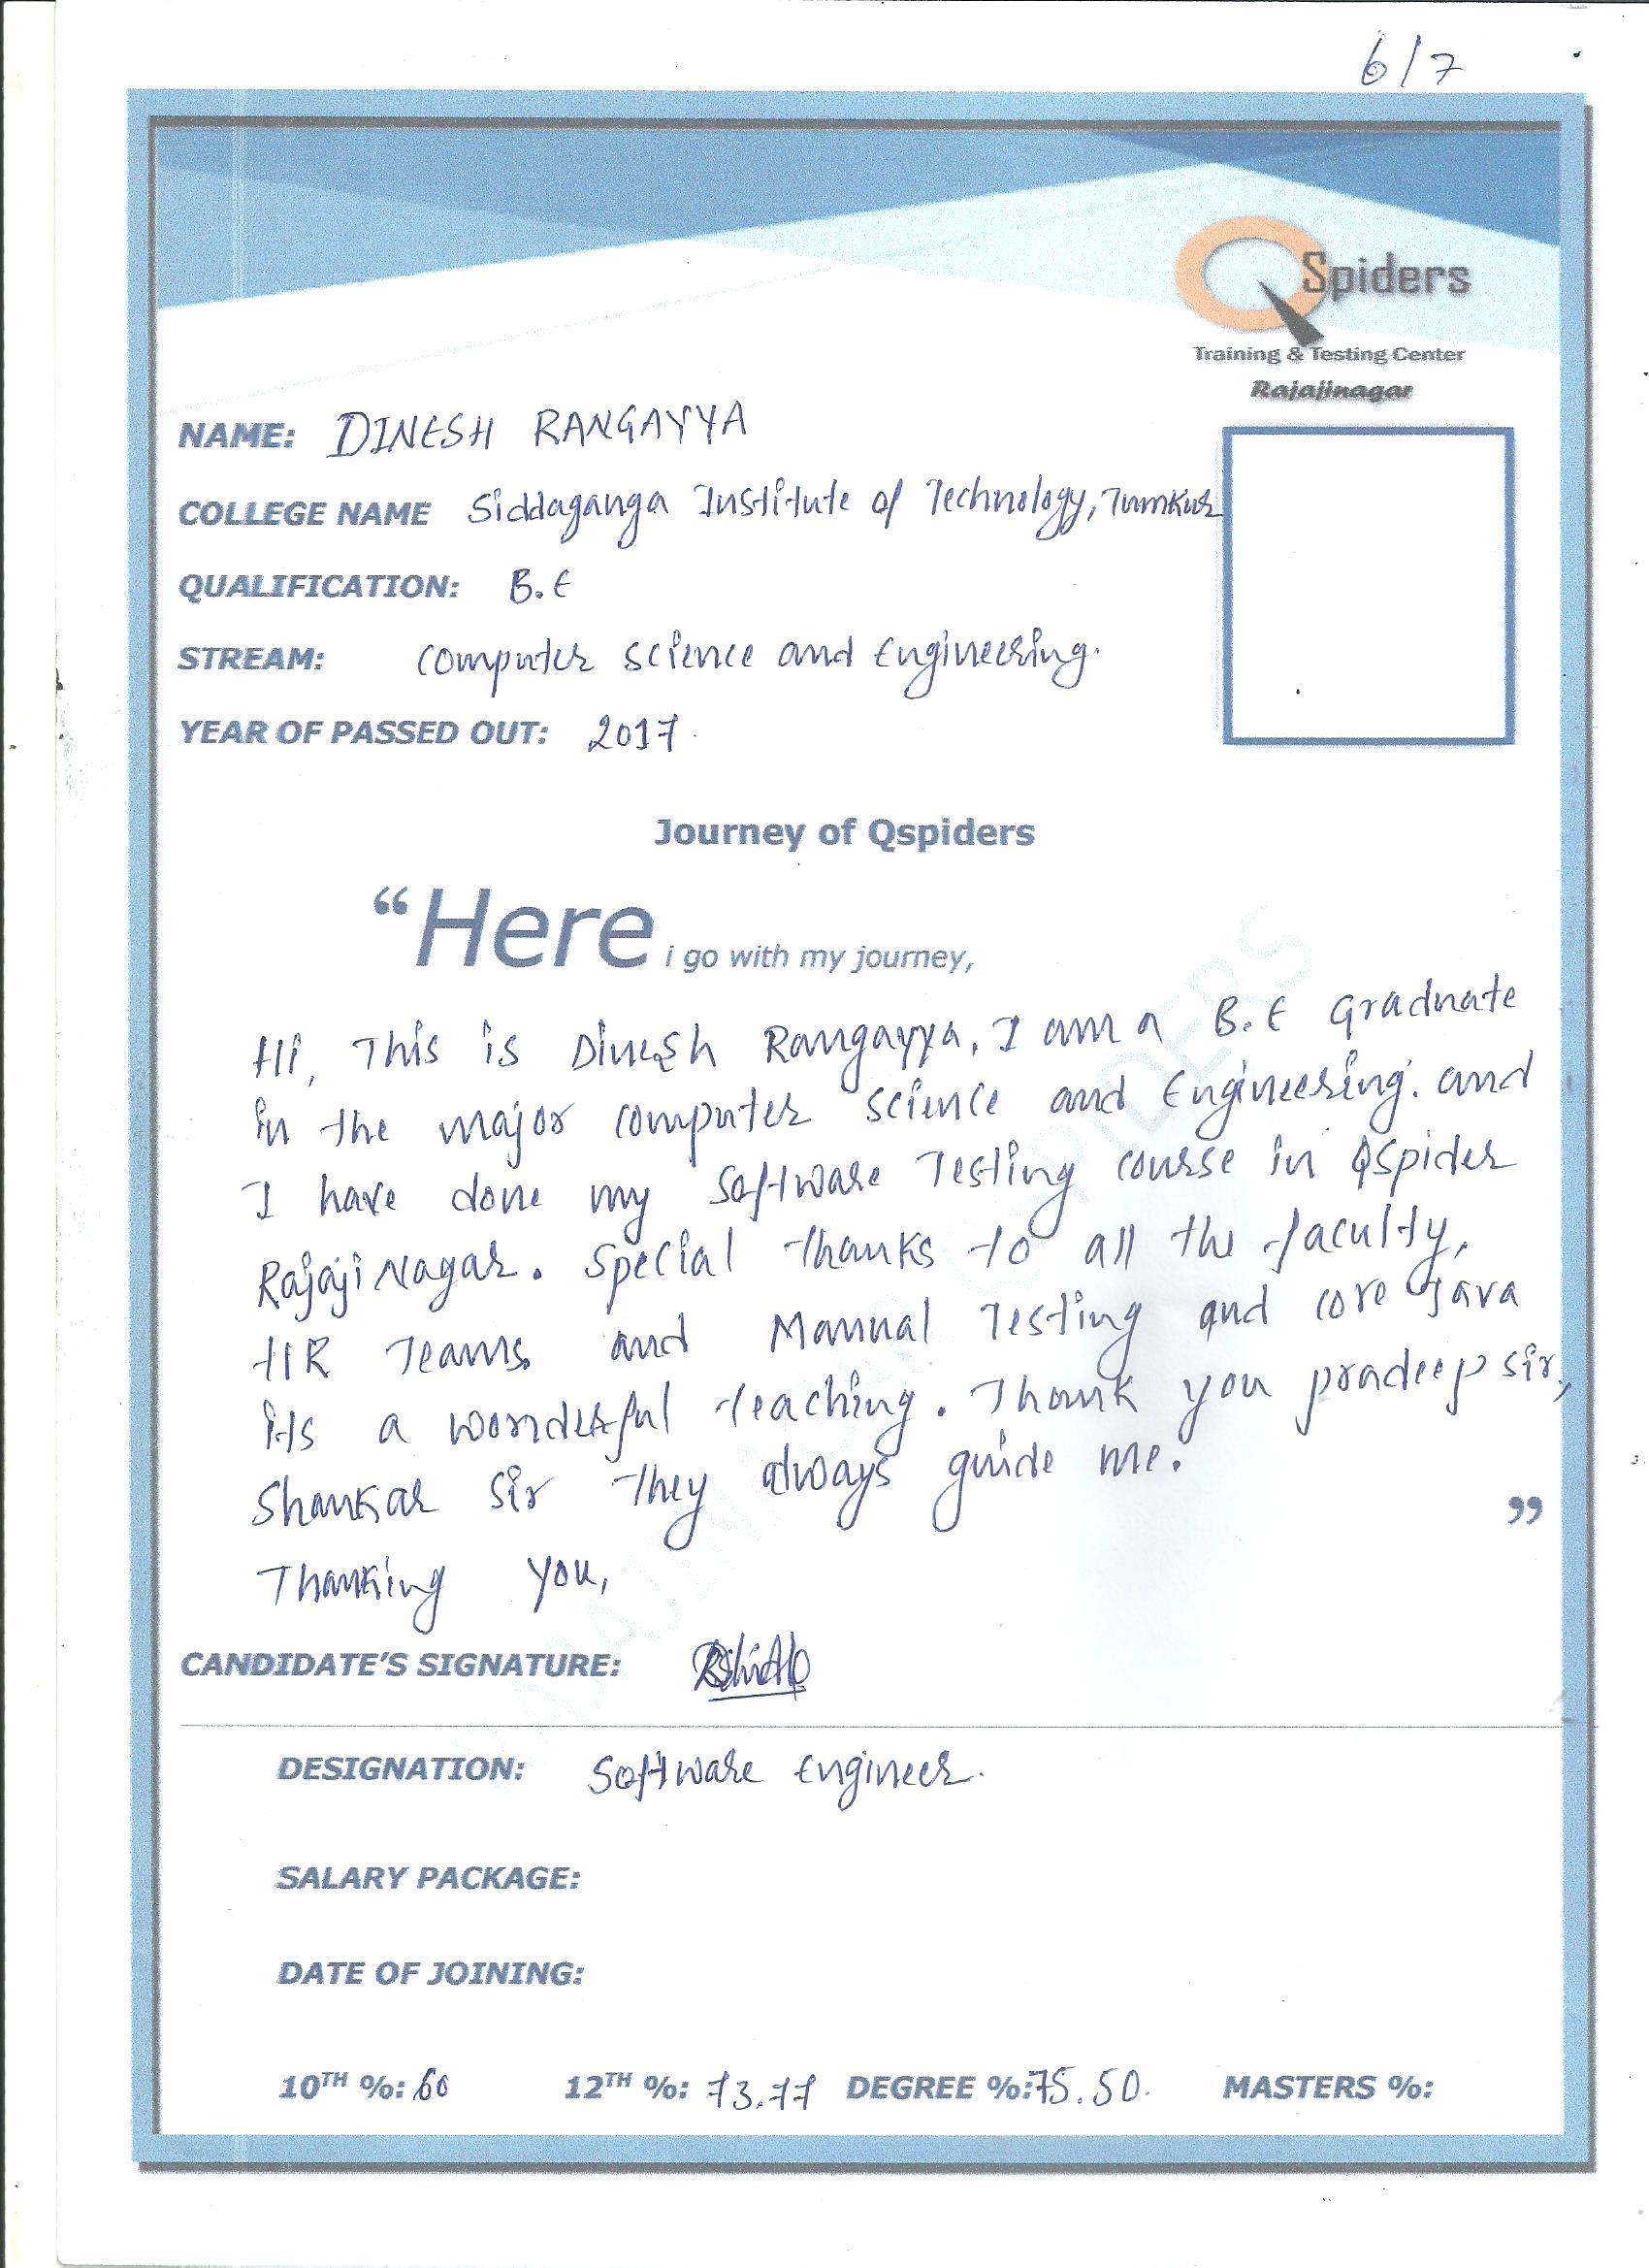 6/7
QSpiders
Training & Testing Center
Rajajinagar
NAME: DINESH RANGAYYA
COLLEGE NAME Siddaganga Institute of Technology, Tumkur
QUALIFICATION: B.E
STREAM: Computer Science and Engineering.
YEAR OF PASSED OUT: 2017.
Journey of Qspiders
“Here i go with my journey,
Hi, This is Dinesh Rangayya, I am a B.E Graduate
in the major computer science and Engineering. and
I have done my Software Testing course in QSpider
Rajaji Nagar. Special thanks to all the faculty,
HR Teams. and Manual Testing and core Java
its a wonderful teaching. Thank you pradeep sir,
Shankar Sir They always guide me.
”
Thanking you,
CANDIDATE’S SIGNATURE:
DESIGNATION: Software Engineer.
SALARY PACKAGE:
DATE OF JOINING:
10TH %: 60 12TH %: 73.77 DEGREE %: 75.50. MASTERS %: